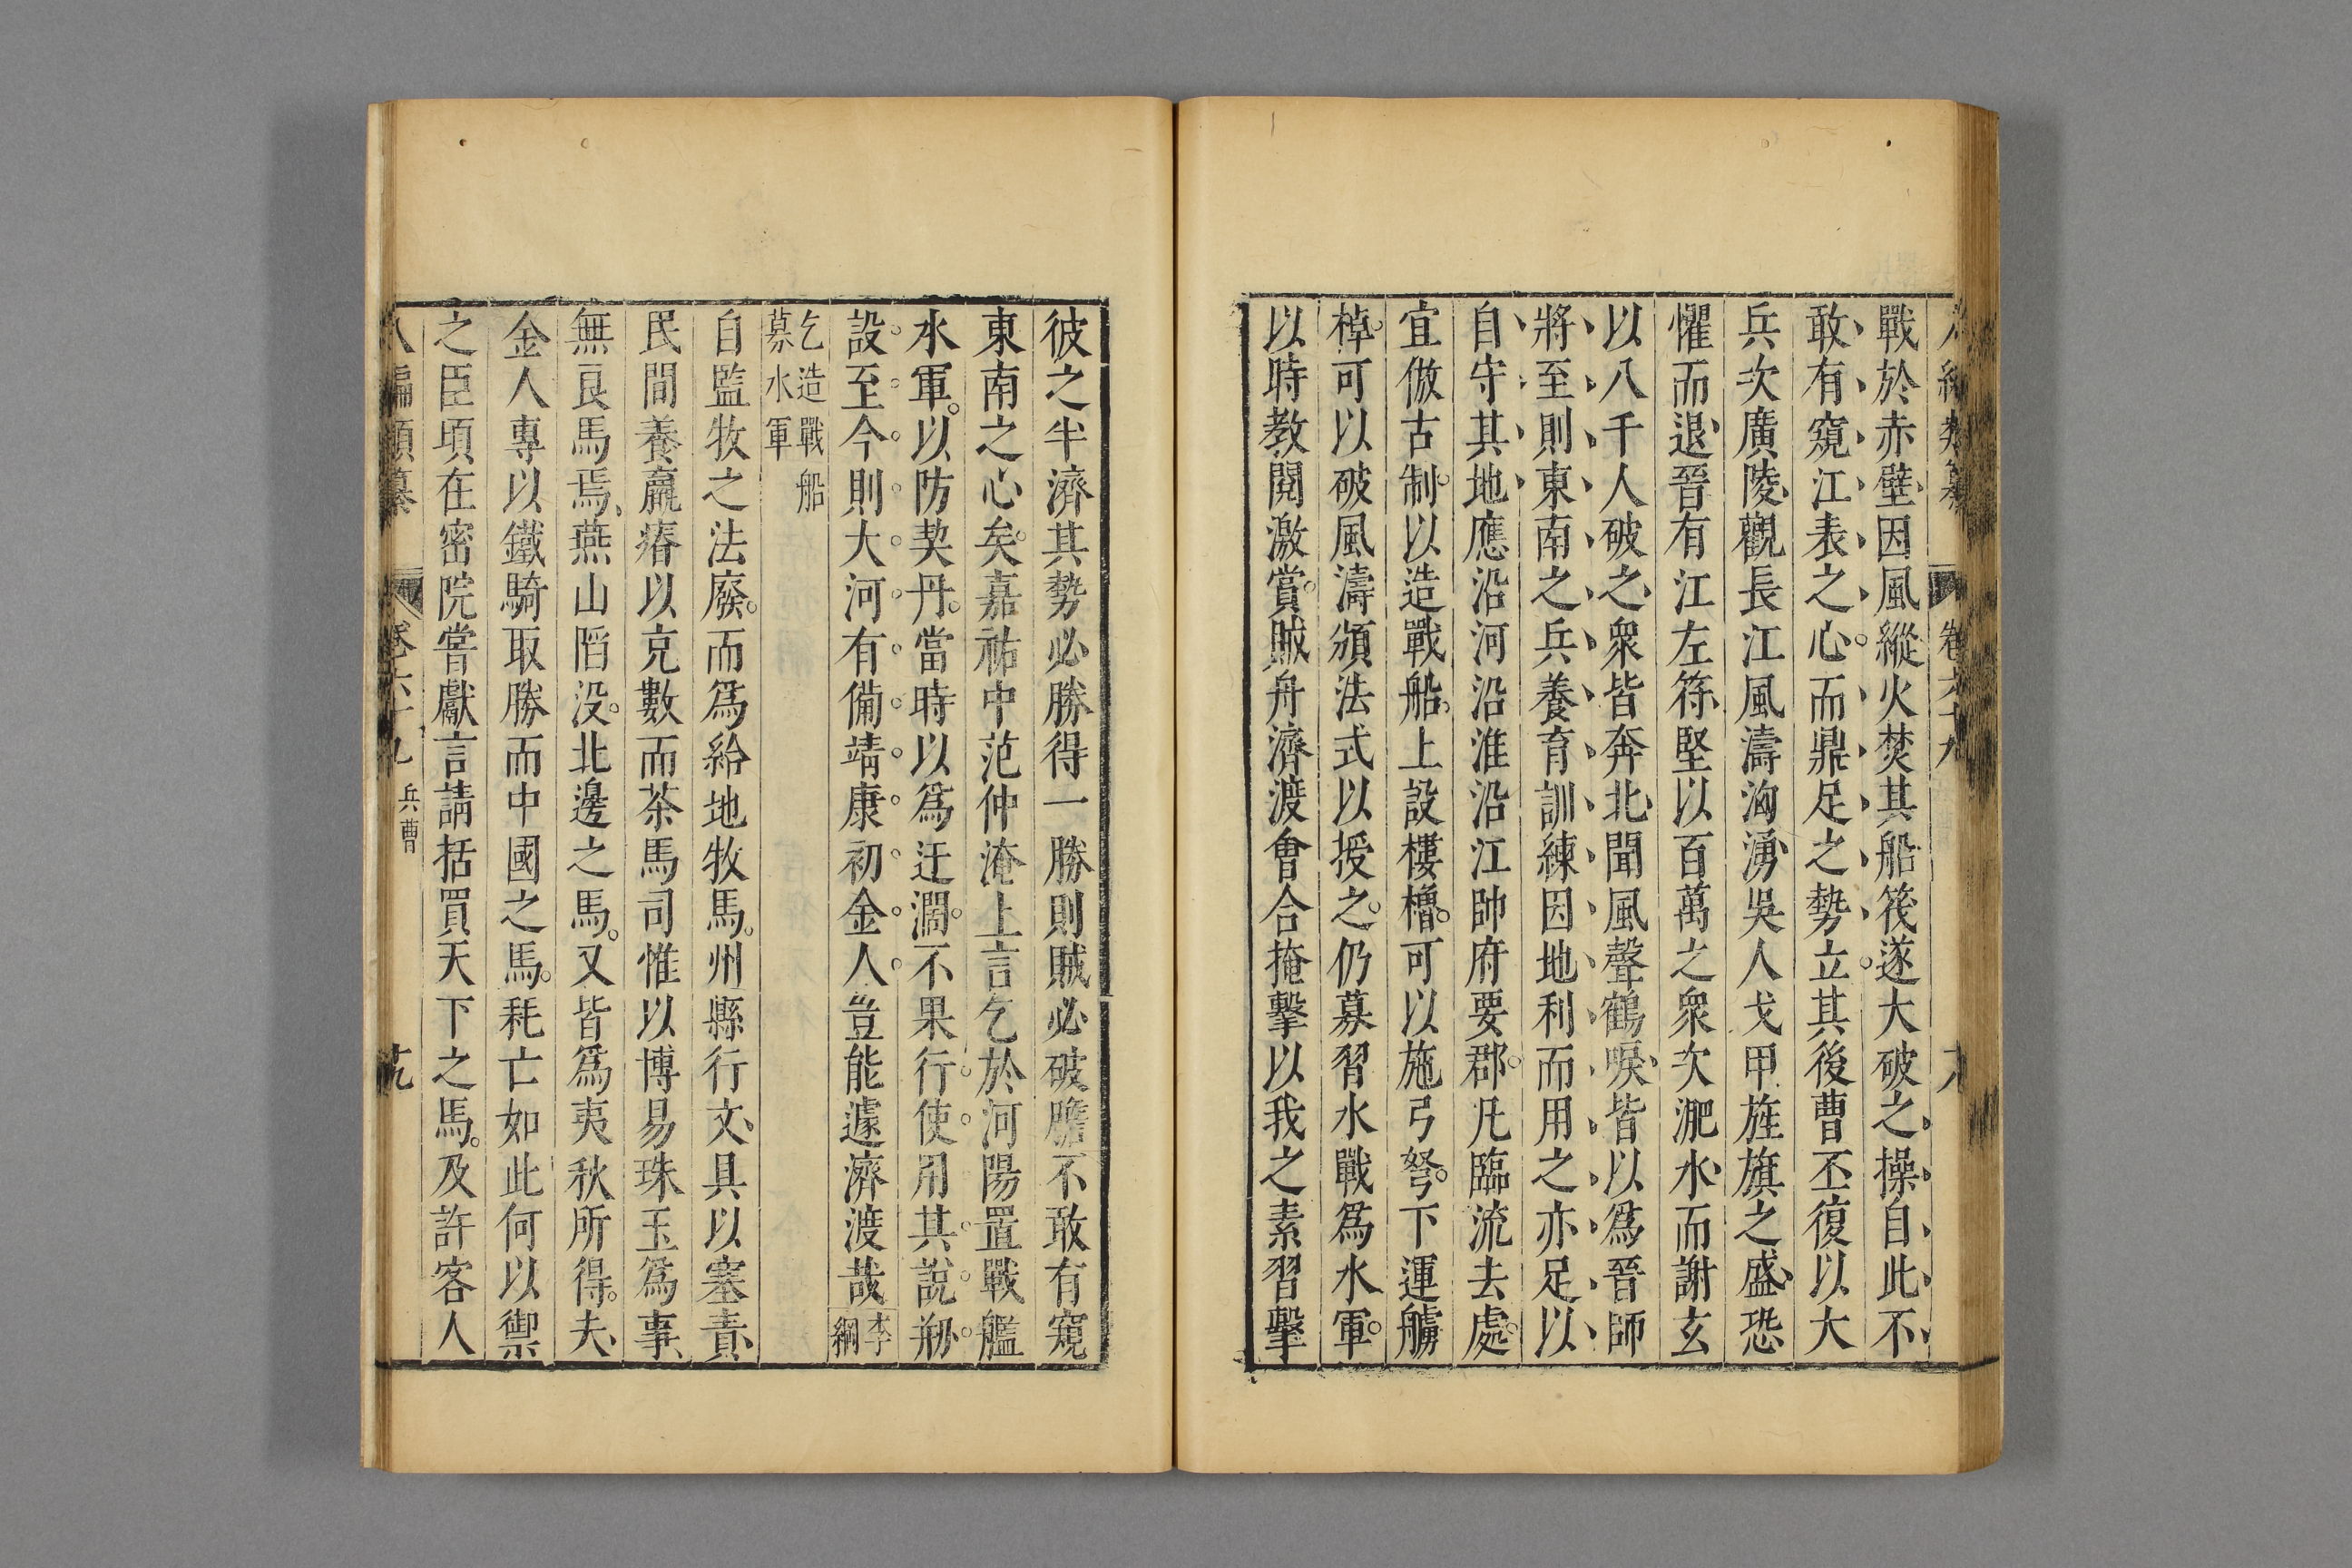 戰於赤壁因風縱火焚其船筏遂大破之操自此不
敢有窺江表之心而鼎足之勢立其後曹丕復以大
兵次廣陵觀長江風濤洶湧吳人戈甲旌旗之盛恐
懼而退晉有江左符堅以百萬之衆次淝水而謝玄
以八千人破之衆皆奔北聞風聲鶴唳皆以爲晉師
將至則東南之兵養育訓練因地利而用之亦足以
自守其地應沿河沿淮沿江帥府要郡凡臨流去處
宜倣古制以造戰船上設樓櫓可以施弓弩下運艣
棹可以破風濤頒法式以授之仍募習水戰爲水軍
以時教閱激賞賊舟濟渡會合掩擊以我之素習擊
彼之半濟其勢必勝得一勝則賊必破膽不敢有窺
東南之心矣嘉祐中范仲淹上言乞於河陽置戰艦
水軍以防契丹當時以爲迂濶不果行使用其說剏
設至今則大河有備靖康初金人豈能遽濟渡哉李綱
乞造戰船
募水軍
自監牧之法廢而爲給地牧馬州縣行文具以塞責
民間養羸瘠以充數而茶馬司惟以博易珠玉爲事
無良馬焉燕山陷没北邊之馬又皆爲夷狄所得夫
金人專以鐵騎取勝而中國之馬耗亡如此何以禦
之臣頃在密院嘗獻言請括買天下之馬及許客人
八編類纂 卷六十九 兵曹